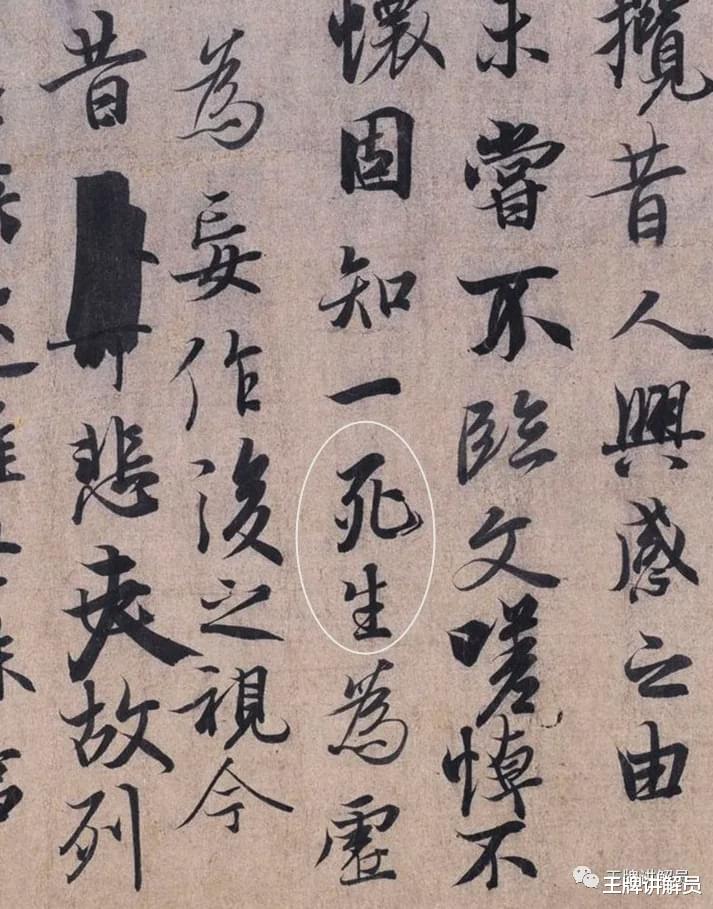 攬昔人興感之由
未嘗不臨文嗟悼不
懷固知一死生為虛
為妄作後之視今
昔悲夫故列
王牌讲解员
王牌讲解员